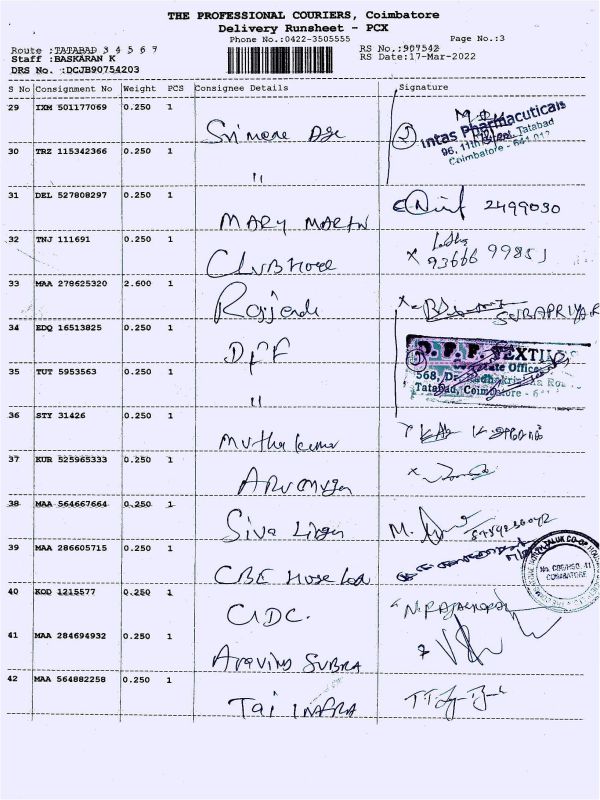 THE PROFESSIONAL COURIERS, Coimbatore
Delivery Runsheet - PCX
Phone No.:0422-3505555 Page No.:3
Route :TATABAD 3 4 5 6 7 RS No.:907542
Staff :BASKARAN K RS Date:17-Mar-2022
DRS No. :DCJB90754203
S No Consignment No Weight PCS Consignee Details Signature
29 IXM 501177069 0.250 1
Intas Pharmaceuticals
96, 11th Street, Tatabad
Coimbatore - 641 012
30 TRZ 115342366 0.250 1 "
31 DEL 527808297 0.250 1
MARY MARTIN 2499030
32 TNJ 111691 0.250 1
33 MAA 278625320 2.600 1
SUBAPRIYA R
34 EDQ 16513825 0.250 1
DPF
D. P. F. TEXTILES
Corporate Office
568, Dr. Radhakrishna Road
Tatabad, Coimbatore
35 TUT 5953563 0.250 1 "
36 STY 31426 0.250 1
Muthu kumar
37 KUR 525965333 0.250 1
Arumugan
38 MAA 564667664 0.250 1
Siva
39 MAA 286605715 0.250 1
No. CBE/HSG. 41
COIMBATORE
CBE House
40 KOD 1215577 0.250 1
CIDC. N. RAJAGOPAL
41 MAA 284694932 0.250 1
Aravind SUBRA
42 MAA 564882258 0.250 1
Tai INFRA